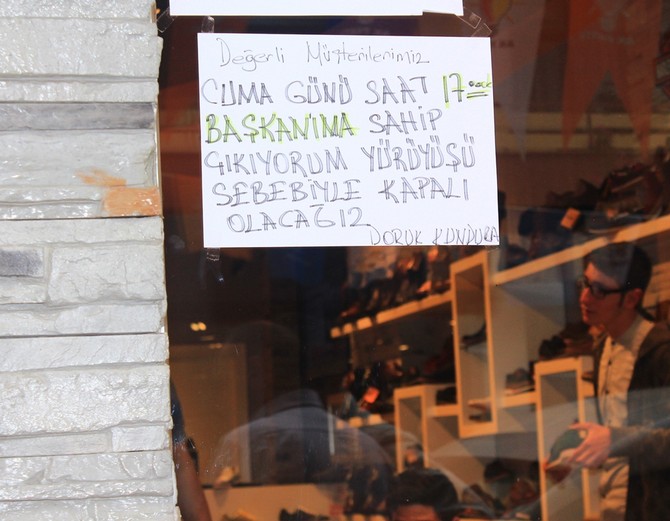 Değerli Müşterilerimiz
CUMA GÜNÜ SAAT 17:00de
BAŞKANIMA SAHİP
ÇIKIYORUM YÜRÜYÜŞÜ
SEBEBİYLE KAPALI
OLACAĞIZ
DORUK KUNDURA